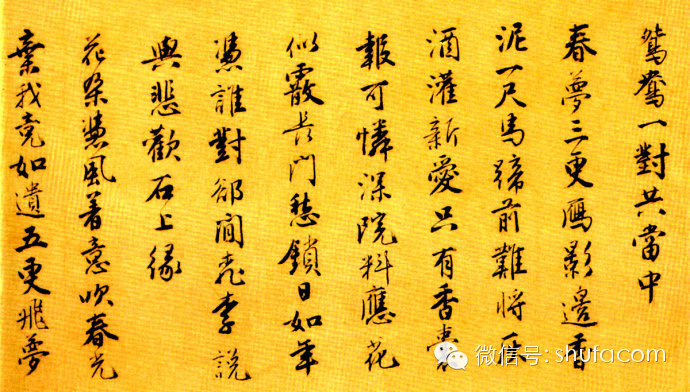 鴛鴦一對共當中
春夢三更鴈影邊香
泥一尺馬蹄前難將
酒灌新愛只有香囊
報可憐深院料應花
似霰長門愁鎖日如年
憑誰對卻閒桃李說
與悲歡石上緣
花朵憑風著意吹春光
棄我竟如遺五更飛夢
微信号: shufacom